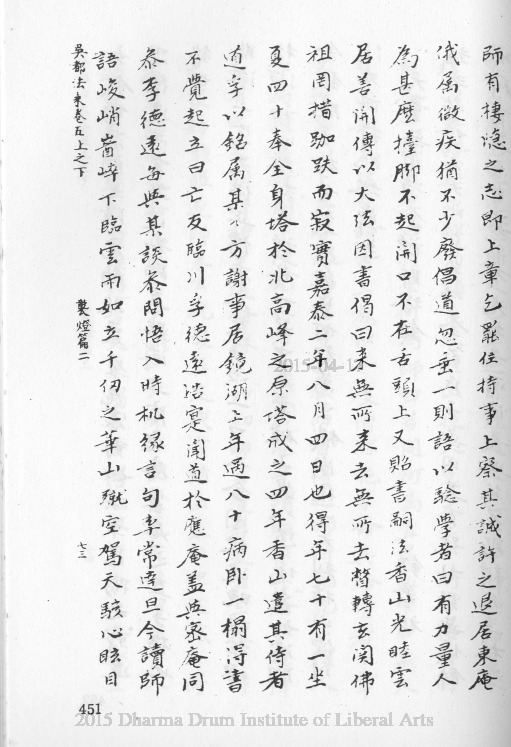 師有棲隱之志即上章乞罷住持事上察其誠許之退居東庵
俄属微疾猶不少廢倡道忽垂一則語以驗學者曰有力量人
為甚麼擡脚不起開口不在舌頭上又貽書嗣法香山光睦雲
居善開傳以大法因書偈曰来無所来去無所去瞥轉玄関佛
祖罔措跏趺而寂實嘉泰二年八月四日也得年七十有一坐
夏四十奉全身塔於北高峰之原塔成之四年香山遣其侍者
道孚以銘属某某方謝事居鏡湖上年過八十病卧一榻得書
不覺起立曰亡友臨川李德遠浩寔聞道於應庵盖與密庵同
参李德遠每與某談参問悟入時机緣言句率常達旦今讀師
語峻峭崷崒下臨雲雨如立千仞之華山蹴空駕天駭心眩目
吳都法乘卷五上之下
契燈篇二
七三
451
2015-04-1
2015 Dharma Drum Institute of Liberal Arts